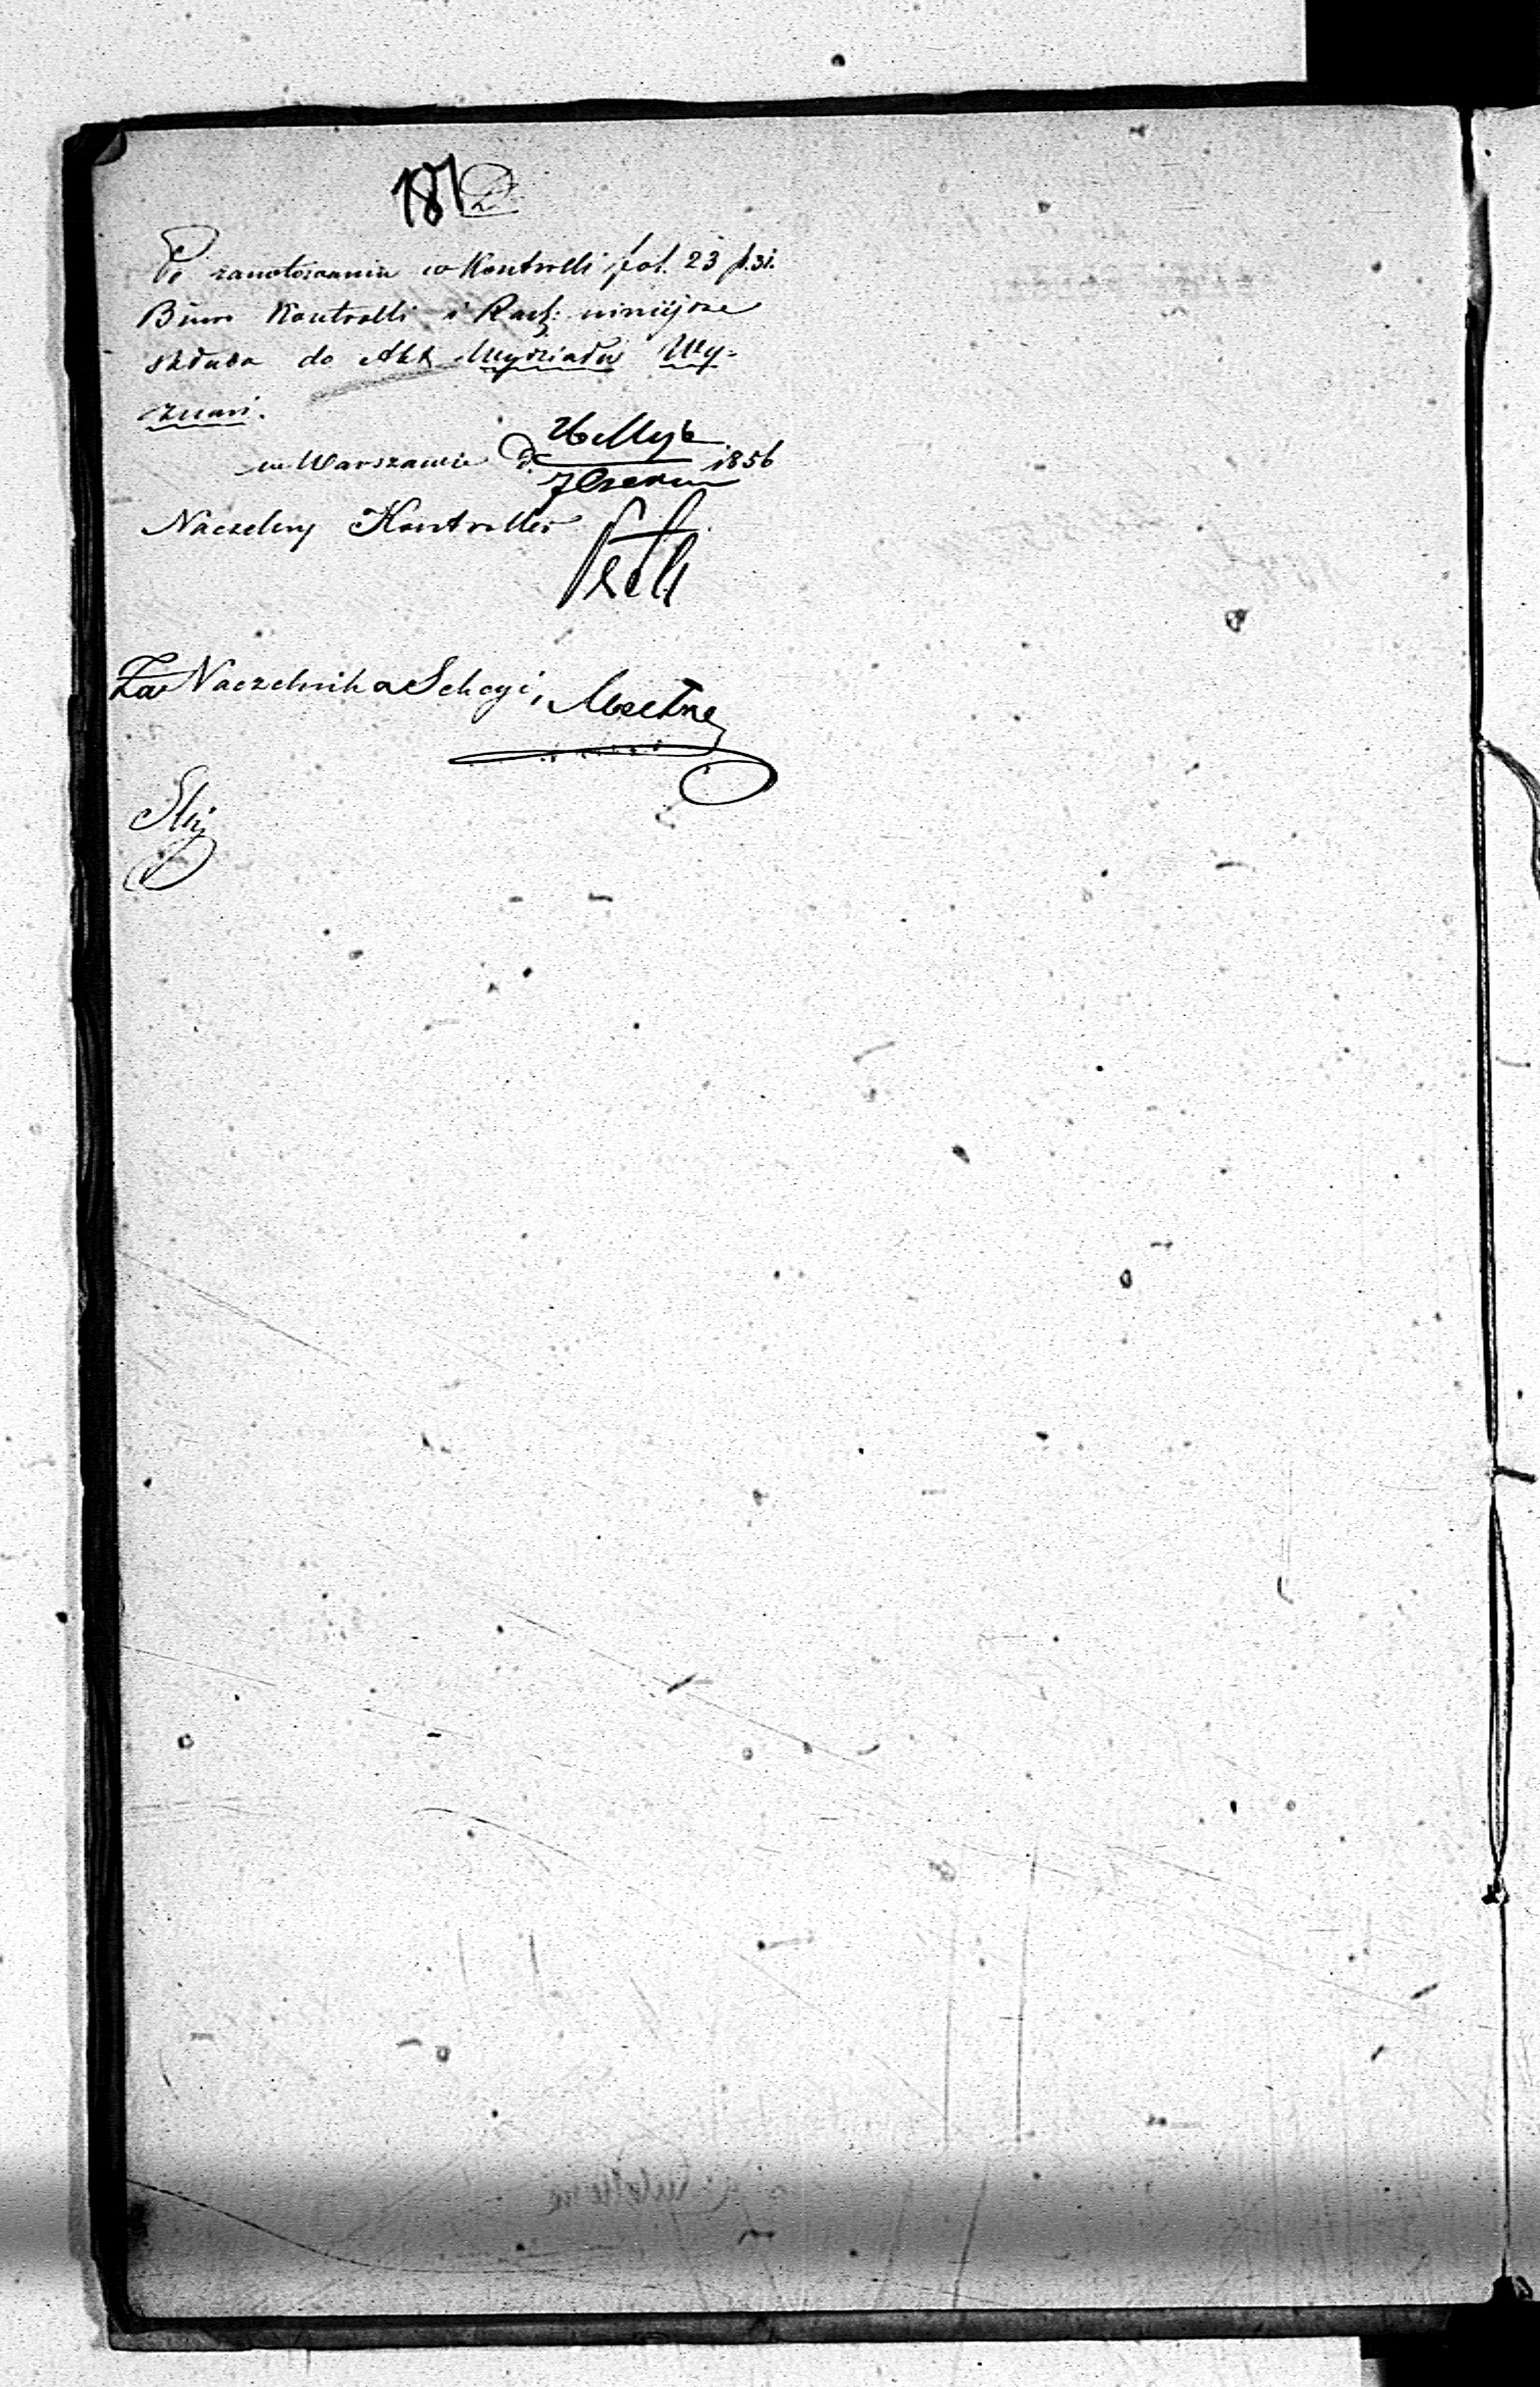 187
Po zanotowaniu w Kontrolli fol. 23 p. 31.
Biuro Kontrolli i Rach: niniejsze
składa do Akt Wydziału Wy-
znań.
w Warszawie d. 26 Maja / 7 Czerwca 1856
Naczelny Kontroller
Za Naczelnika Sekcyi,